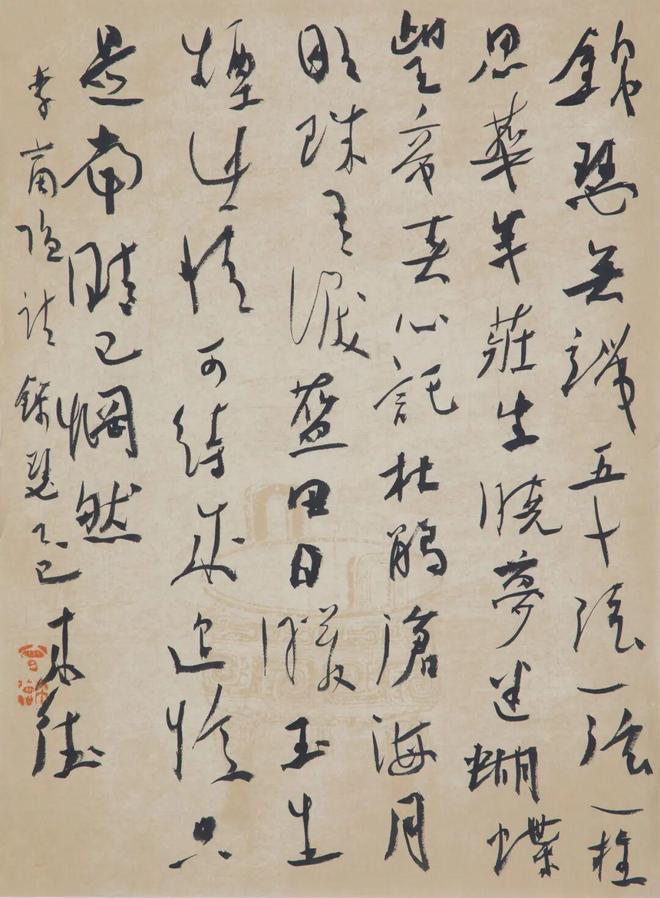 錦瑟無端五十弦一弦一柱
思華年莊生曉夢迷蝴蝶
望帝春心託杜鵑滄海月
明珠有淚藍田日暖玉生
煙此情可待成追憶只
是當時已惘然
李商隱詩錦瑟乙巳